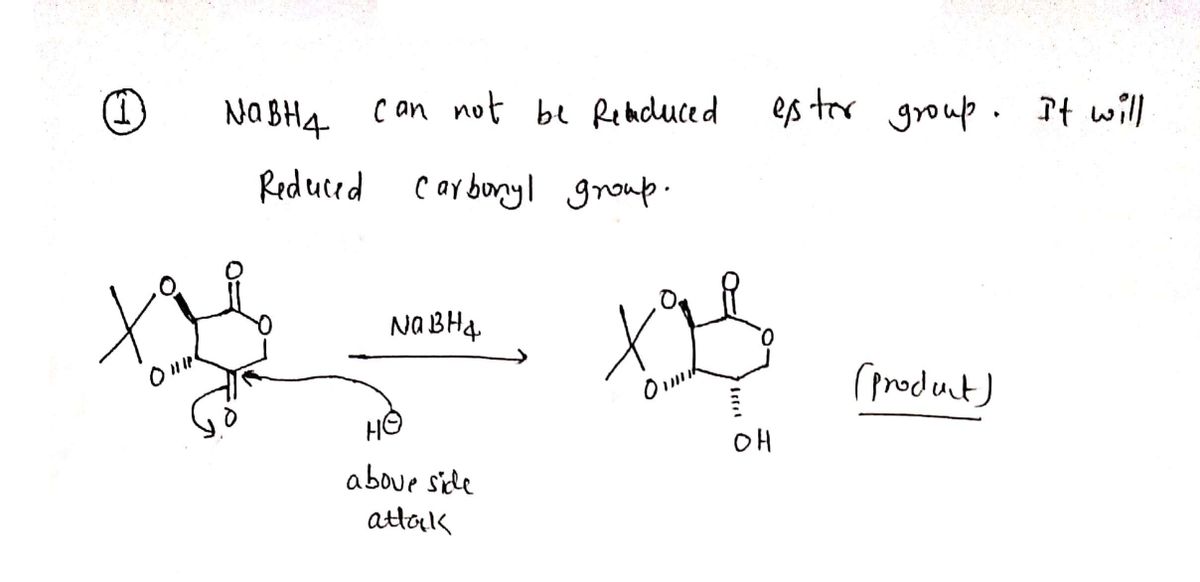 ① NaBH4 can not be Reduced ester group. It will
Reduced carbonyl group.
O
O
O
O
O
NaBH4
H⊖
above side
attack
O
O
O
O
OH
(product)